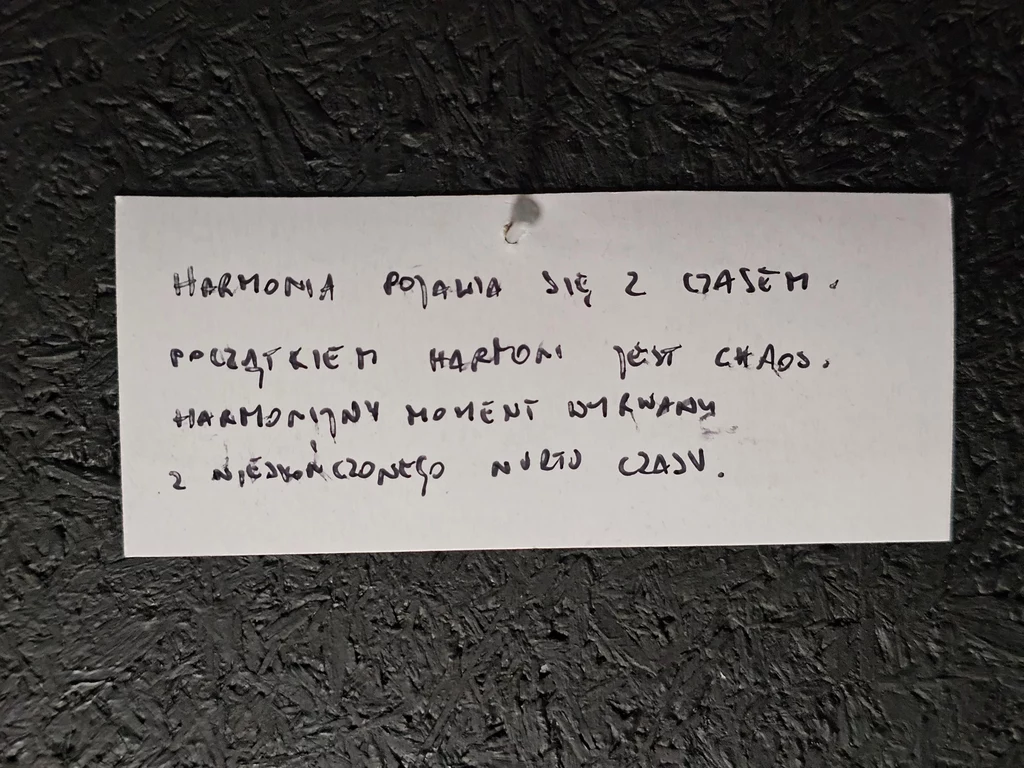 HARMONIA POJAWIA SIĘ Z CZASEM.
POCZĄTKIEM HARMONI JEST CHAOS.
HARMONIJNY MOMENT WYRWANY
Z NIESKOŃCZONEGO NURTU CZASU.